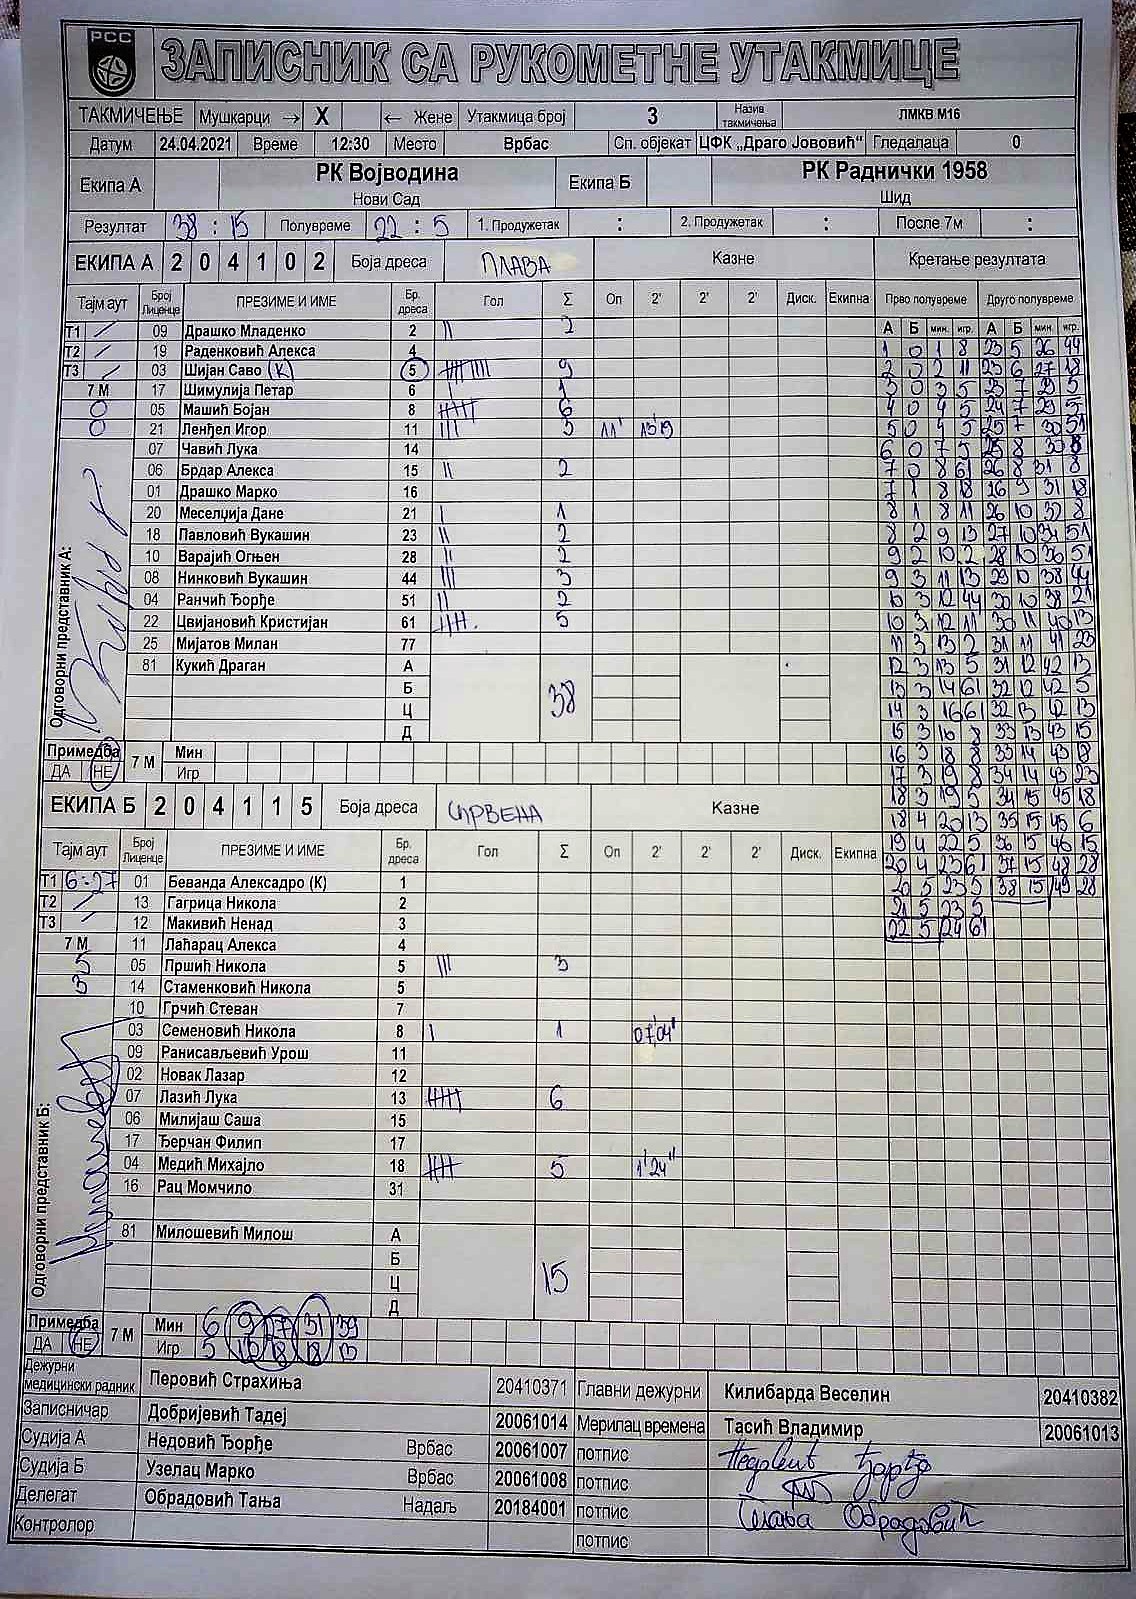 РСС
ЗАПИСНИК СА РУКОМЕТНЕ УТАКМИЦЕ
ТАКМИЧЕЊЕ Мушкарци → X ← Жене Утакмица број 3 Назив такмичења ЛМКВ М16
Датум 24.04.2021 Време 12:30 Место Врбас Сп. објекат ЦФК „Драго Јововић“ Гледалаца 0
Екипа А РК Војводина Нови Сад Екипа Б РК Раднички 1958 Шид
Резултат 38 : 15 Полувреме 22 : 5 1. Продужетак : 2. Продужетак : После 7м :
ЕКИПА А 2 0 4 1 0 2 Боја дреса ПЛАВА Казне Кретање резултата
Тајм аут Број Лиценце ПРЕЗИМЕ И ИМЕ Бр. дреса Гол Σ Оп 2' 2' 2' Диск. Екипна Прво полувреме Друго полувреме
А Б мин. игр. А Б мин. игр.
Т1 / 09 Драшко Младенко 2 || 2
1 0 1 8 23 5 26 44
Т2 / 19 Раденковић Алекса 4
2 0 2 11 23 6 27 18
Т3 / 03 Шијан Саво (К) 5 9
3 0 3 5 23 7 29 5
7 М 17 Шимулија Петар 6 1
4 0 4 5 24 7 29 5
0 05 Машић Бојан 8 6
5 0 4 5 25 7 30 51
0 21 Ленђел Игор 11 ||| 3 11' 13'19
6 0 7 5 25 8 30
07 Чавић Лука 14
7 0 8 61 26 8 31 8
06 Брдар Алекса 15 || 2
7 1 8 18 26 9 31 18
01 Драшко Марко 16
8 1 8 11 26 10 32 8
20 Меселџија Дане 21 | 1
8 2 9 13 27 10 34 51
18 Павловић Вукашин 23 || 2
9 2 10 2 28 10 36 51
10 Варајић Огњен 28 || 2
9 3 11 13 29 10 38 44
08 Нинковић Вукашин 44 ||| 3
10 3 12 44 30 10 38 21
04 Ранчић Ђорђе 51 || 2
10 3 12 11 30 11 40 13
22 Цвијановић Кристијан 61 5
11 3 13 2 31 11 41 23
25 Мијатов Милан 77
12 3 13 5 31 12 42 13
81 Кукић Драган А
13 3 14 61 32 12 42 5
Б 38
14 3 16 61 32 13 42 13
Ц
15 3 16 8 33 13 43 15
Д
16 3 18 8 33 14 43 18
Одговорни представник А:
Примедба ДА НЕ 7 М Мин
Игр
17 3 19 8 34 14 43 23
18 3 19 5 34 15 45 18
ЕКИПА Б 2 0 4 1 1 5 Боја дреса ЦРВЕНА Казне
18 4 20 13 35 15 45 6
Тајм аут Број Лиценце ПРЕЗИМЕ И ИМЕ Бр. дреса Гол Σ Оп 2' 2' 2' Диск. Екипна
19 4 22 5 36 15 46 15
20 4 23 61 37 15 48 28
20 5 23 5 38 15 49 28
21 5 23 5
22 5 24 61
Т1 6:27 01 Беванда Алексадро (К) 1
Т2 / 13 Гагрица Никола 2
Т3 / 12 Макивић Ненад 3
7 М 11 Лаћарац Алекса 4
5 05 Пршић Никола 5 ||| 3
3 14 Стаменковић Никола 5
10 Грчић Стеван 7
03 Семеновић Никола 8 | 1 07'04''
09 Ранисављевић Урош 11
02 Новак Лазар 12
07 Лазић Лука 13 6
06 Милијаш Саша 15
17 Ђерчан Филип 17
04 Медић Михајло 18 5 1'24''
16 Рац Момчило 31
81 Милошевић Милош А
Б
Ц 15
Д
Одговорни представник Б:
Примедба ДА НЕ 7 М Мин 6 9 27 31 39
Игр 5 18 18 13
Дежурни медицински радник Перовић Страхиња 20410371 Главни дежурни Килибарда Веселин 20410382
Записничар Добријевић Тадеј 20061014 Мерилац времена Тасић Владимир 20061013
Судија А Недовић Ђорђе Врбас 20061007 потпис
Судија Б Узелац Марко Врбас 20061008 потпис
Делегат Обрадовић Тања Надаљ 20184001 потпис Тања Обрадовић
Контролор потпис